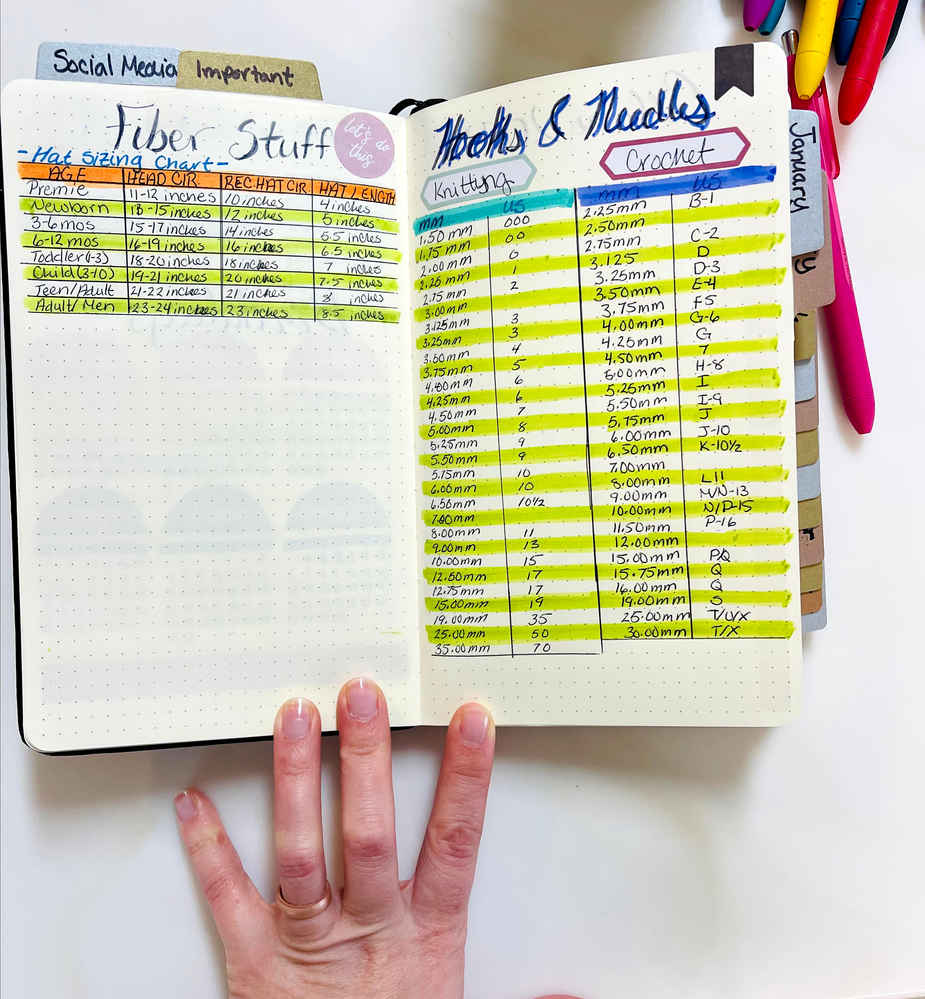 Social Media
Important
Fiber Stuff
let's do this
-Hat Sizing Chart-
AGE HEAD CIR. REC HAT CIR. HAT LENGTH
Premie 11-12 inches 10 inches 4 inches
Newborn 13-15 inches 12 inches 5 inches
3-6 mos 15-17 inches 14 inches 5.5 inches
6-12 mos 16-19 inches 16 inches 6.5 inches
Toddler(1-3) 18-20 inches 18 inches 7 inches
Child(3-10) 19-21 inches 20 inches 7.5 inches
Teen/Adult 21-22 inches 21 inches 8 inches
Adult/Men 23-24 inches 23 inches 8.5 inches
Hooks & Needles
Knittyng
mm US
1.50 mm 000
1.75 mm 00
2.00 mm 0
2.25 mm 1
2.75 mm 2
3.00mm
3.125mm 3
3.25mm 3
3.50mm 4
3.75mm 5
4.00mm 6
4.25mm 6
4.50mm 7
5.00mm 8
5.25mm 9
5.50mm 9
5.75mm 10
6.00mm 10
6.50mm 10½
7.00mm
8.00mm 11
9.00mm 13
10.00mm 15
12.50mm 17
12.75mm 17
15.00mm 19
19.00mm 35
25.00mm 50
35.00mm 70
Crochet
mm US
2.25mm B-1
2.50mm
2.75mm C-2
3.125 D
3.25mm D-3
3.50mm E-4
3.75mm F5
4.00mm G-6
4.25mm G
4.50mm 7
5.00mm H-8
5.25mm I
5.50mm I-9
5.75mm J
6.00mm J-10
6.50mm K-10½
7.00mm
8.00mm L11
9.00mm M/N-13
10.00mm N/P-15
11.50mm P-16
12.00mm
15.00mm P/Q
15.75mm Q
16.00mm Q
19.00mm S
25.00mm T/U/X
30.00mm T/X
January